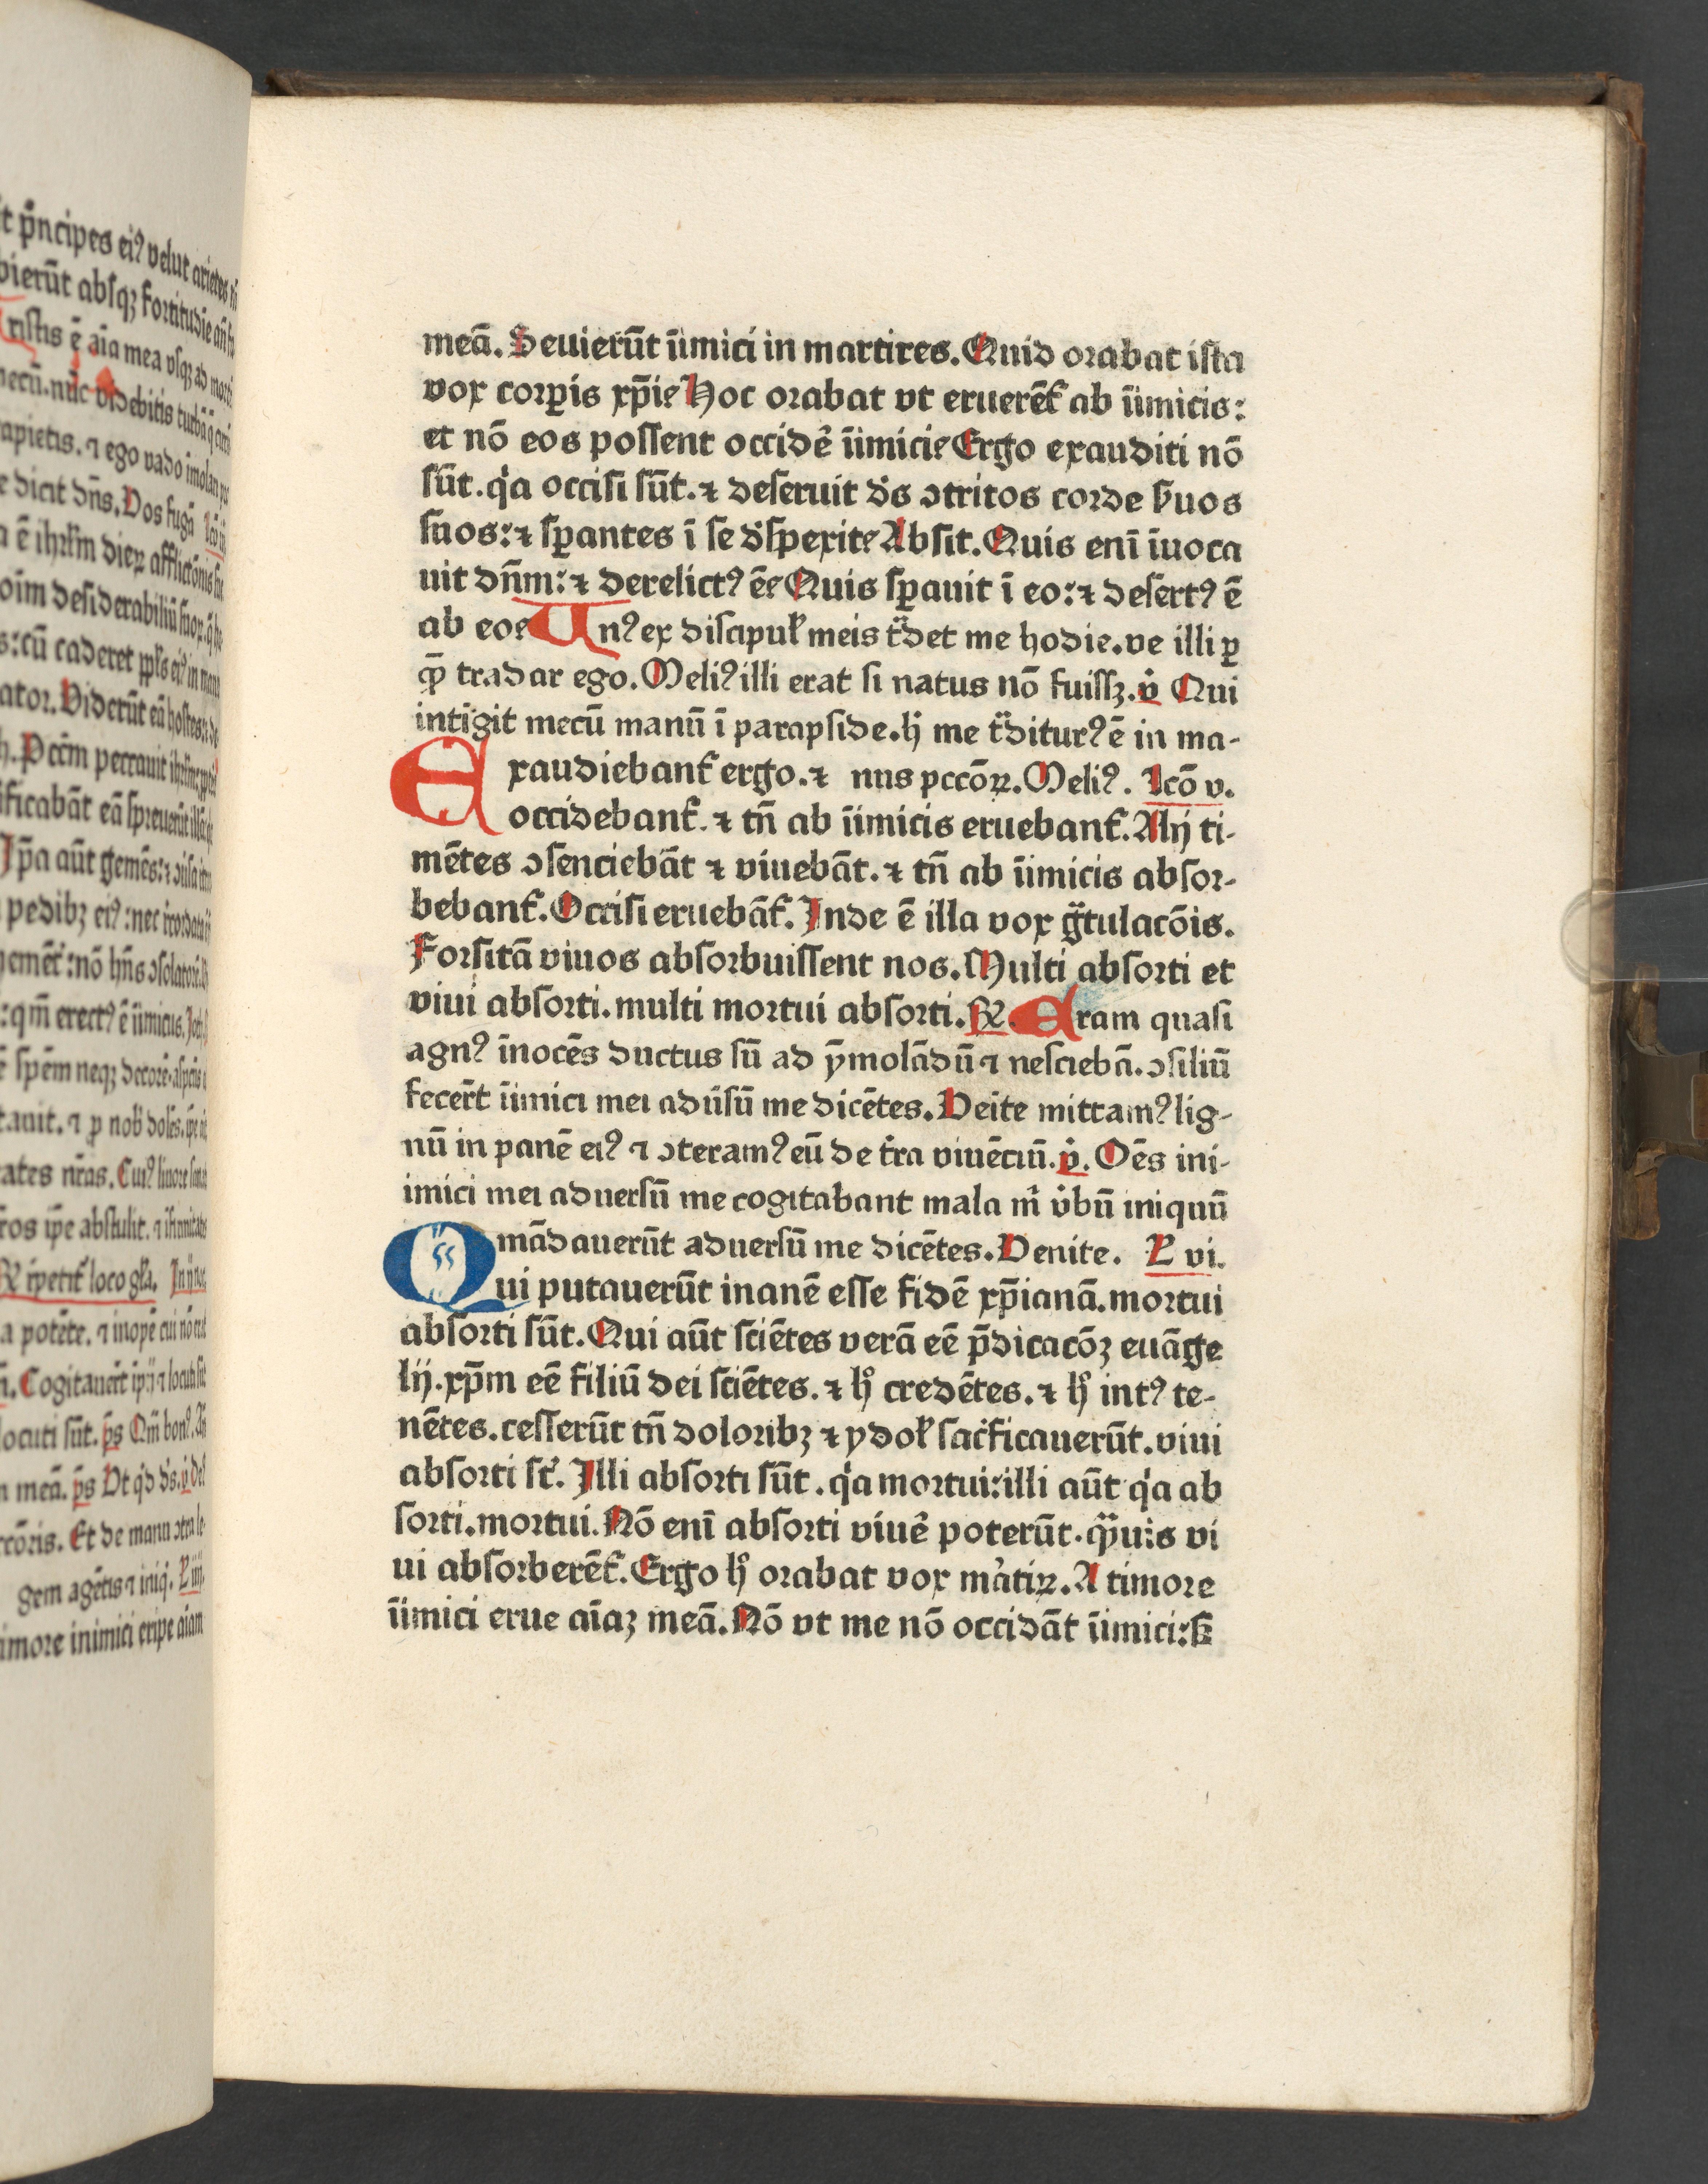 t p̄ncipes ei⁹ velut arietes
bierūt absqꝫ fortitudīe an̄
ristis ē aīa mea vsqꝫ ad
mecū. nūc videbitis turbā
rapietis. ⁊ ego vado imolari
e dicit dn̄s. Vos fugā
a ē ihrl̄m dieꝝ afflictōnis
oīm desiderabiliū suoꝝ
s: cū caderet ppl̄s ei⁹ in manu
ator. Viderūt eā hostes:
h. Pcc̄m peccauit
ificabāt eā spreuerūt
Ip̄a aūt gemēs: ⁊
pedibꝫ ei⁹: nec
nō hn̄s ↄsolatorē.
:qm̄ erect⁹ ē īimicus.
ē spēm neqꝫ decorē.
tauit. ⁊ ꝓ nob̄ dolēs. ip̄e
tates nr̄as. Cui⁹ liuore
ros ip̄e abstulit. ⁊
loco gl̄a.
a potēte. ⁊ inopē cui nō
Cogitauer̄t ip̄ij ⁊ locuti st̄
locuti sūt. p̄s Qm̄ bon⁹.
meā. p̄s Vt qͥd ds̄. v̓ de⁹
ccōris. Et de manu ↄtra le
gem agētis ⁊ iniq̄. P iiij.
imore inimici eripe aīam
meā. Seuierūt īimici in martires. Quid orabat ista
vox corꝑis xp̄i? Hoc orabat vt eruerēt᷑ ab īimicis:
et nō eos possent occidē īimici? Ergo exauditi nō
sūt. qͥa occisi sūt. ⁊ deseruit ds̄ ↄtritos corde s̄uos
suos: ⁊ sꝑantes ī se dēspexit? Absit. Quis enī īuoca
uit dn̄m: ⁊ derelict⁹ ē? Quis sꝑauit ī eo: ⁊ desert⁹ ē
ab eo? Un⁹ ex discipul̄ meis tᷓdet me hodie. ve illi ꝑ
ꝙ̄ tradar ego. Meli⁹ illi erat si natus nō fuissꝫ. v̓ Qui
intīgit mecū manū ī parapside. hͥ me tᷓditur⁹ ē in ma-
Exaudiebant᷑ ergo. ⁊ nus pccōꝝ. Meli⁹. Lcō v.
occidebant᷑. ⁊ tn̄ ab īimicis eruebant᷑. Alij ti-
mētes ↄsenciebāt ⁊ viuebāt. ⁊ tn̄ ab īimicis absor-
bebant᷑. Occisi eruebāt᷑. Inde ē illa vox gᷓtulacōis.
Forsitā viuos absorbuissent nos. Multi absorti et
viui absorti. multi mortui absorti. ℟. Eram quasi
agn⁹ īnocēs ductus sū ad ȳmolādū ⁊ nesciebā. ↄsiliū
fecer̄t īimici mei aduīsū me dicētes. Veīte mittam⁹ lig-
nū in panē ei⁹ ⁊ ↄteram⁹ eū de tr̄a viuēciū. v̓. Oēs ini-
imici mei aduersū me cogitabant mala mͥ v̓bū iniquū
mādauerūt aduersū me dicētes. Venite. P vi.
Qui putauerūt inanē esse fidē xp̄ianā. mortui
absorti sūt. Qui aūt sciētes verā eē p̄dicacōꝫ euāge
lij. xp̄m eē filiū dei sciētes. ⁊ hͦ credētes. ⁊ hͦ int⁹ te-
nētes. cesserūt tn̄ doloribꝫ ⁊ ydol̄ sacͥficauerūt. viui
absorti st̄. Illi absorti sūt. qͥa mortui: illi aūt qͥa ab
sorti. mortui. Nō enī absorti viuē poterūt. qᷓuis vi
ui absorberēt᷑. Ergo hͦ orabat vox mr̄tiꝝ. A timore
īimici erue aīaꝫ meā. Nō vt me nō occidāt īimici: sꝫ